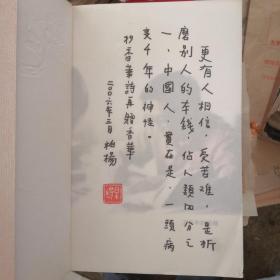 更有人相信,受苦难,是折
磨别人的本钱,佔人类四分之
一,中國人,實在是,一頭病
变千年的神怪。
抄香華詩再贈香華
二○○六年三月柏楊